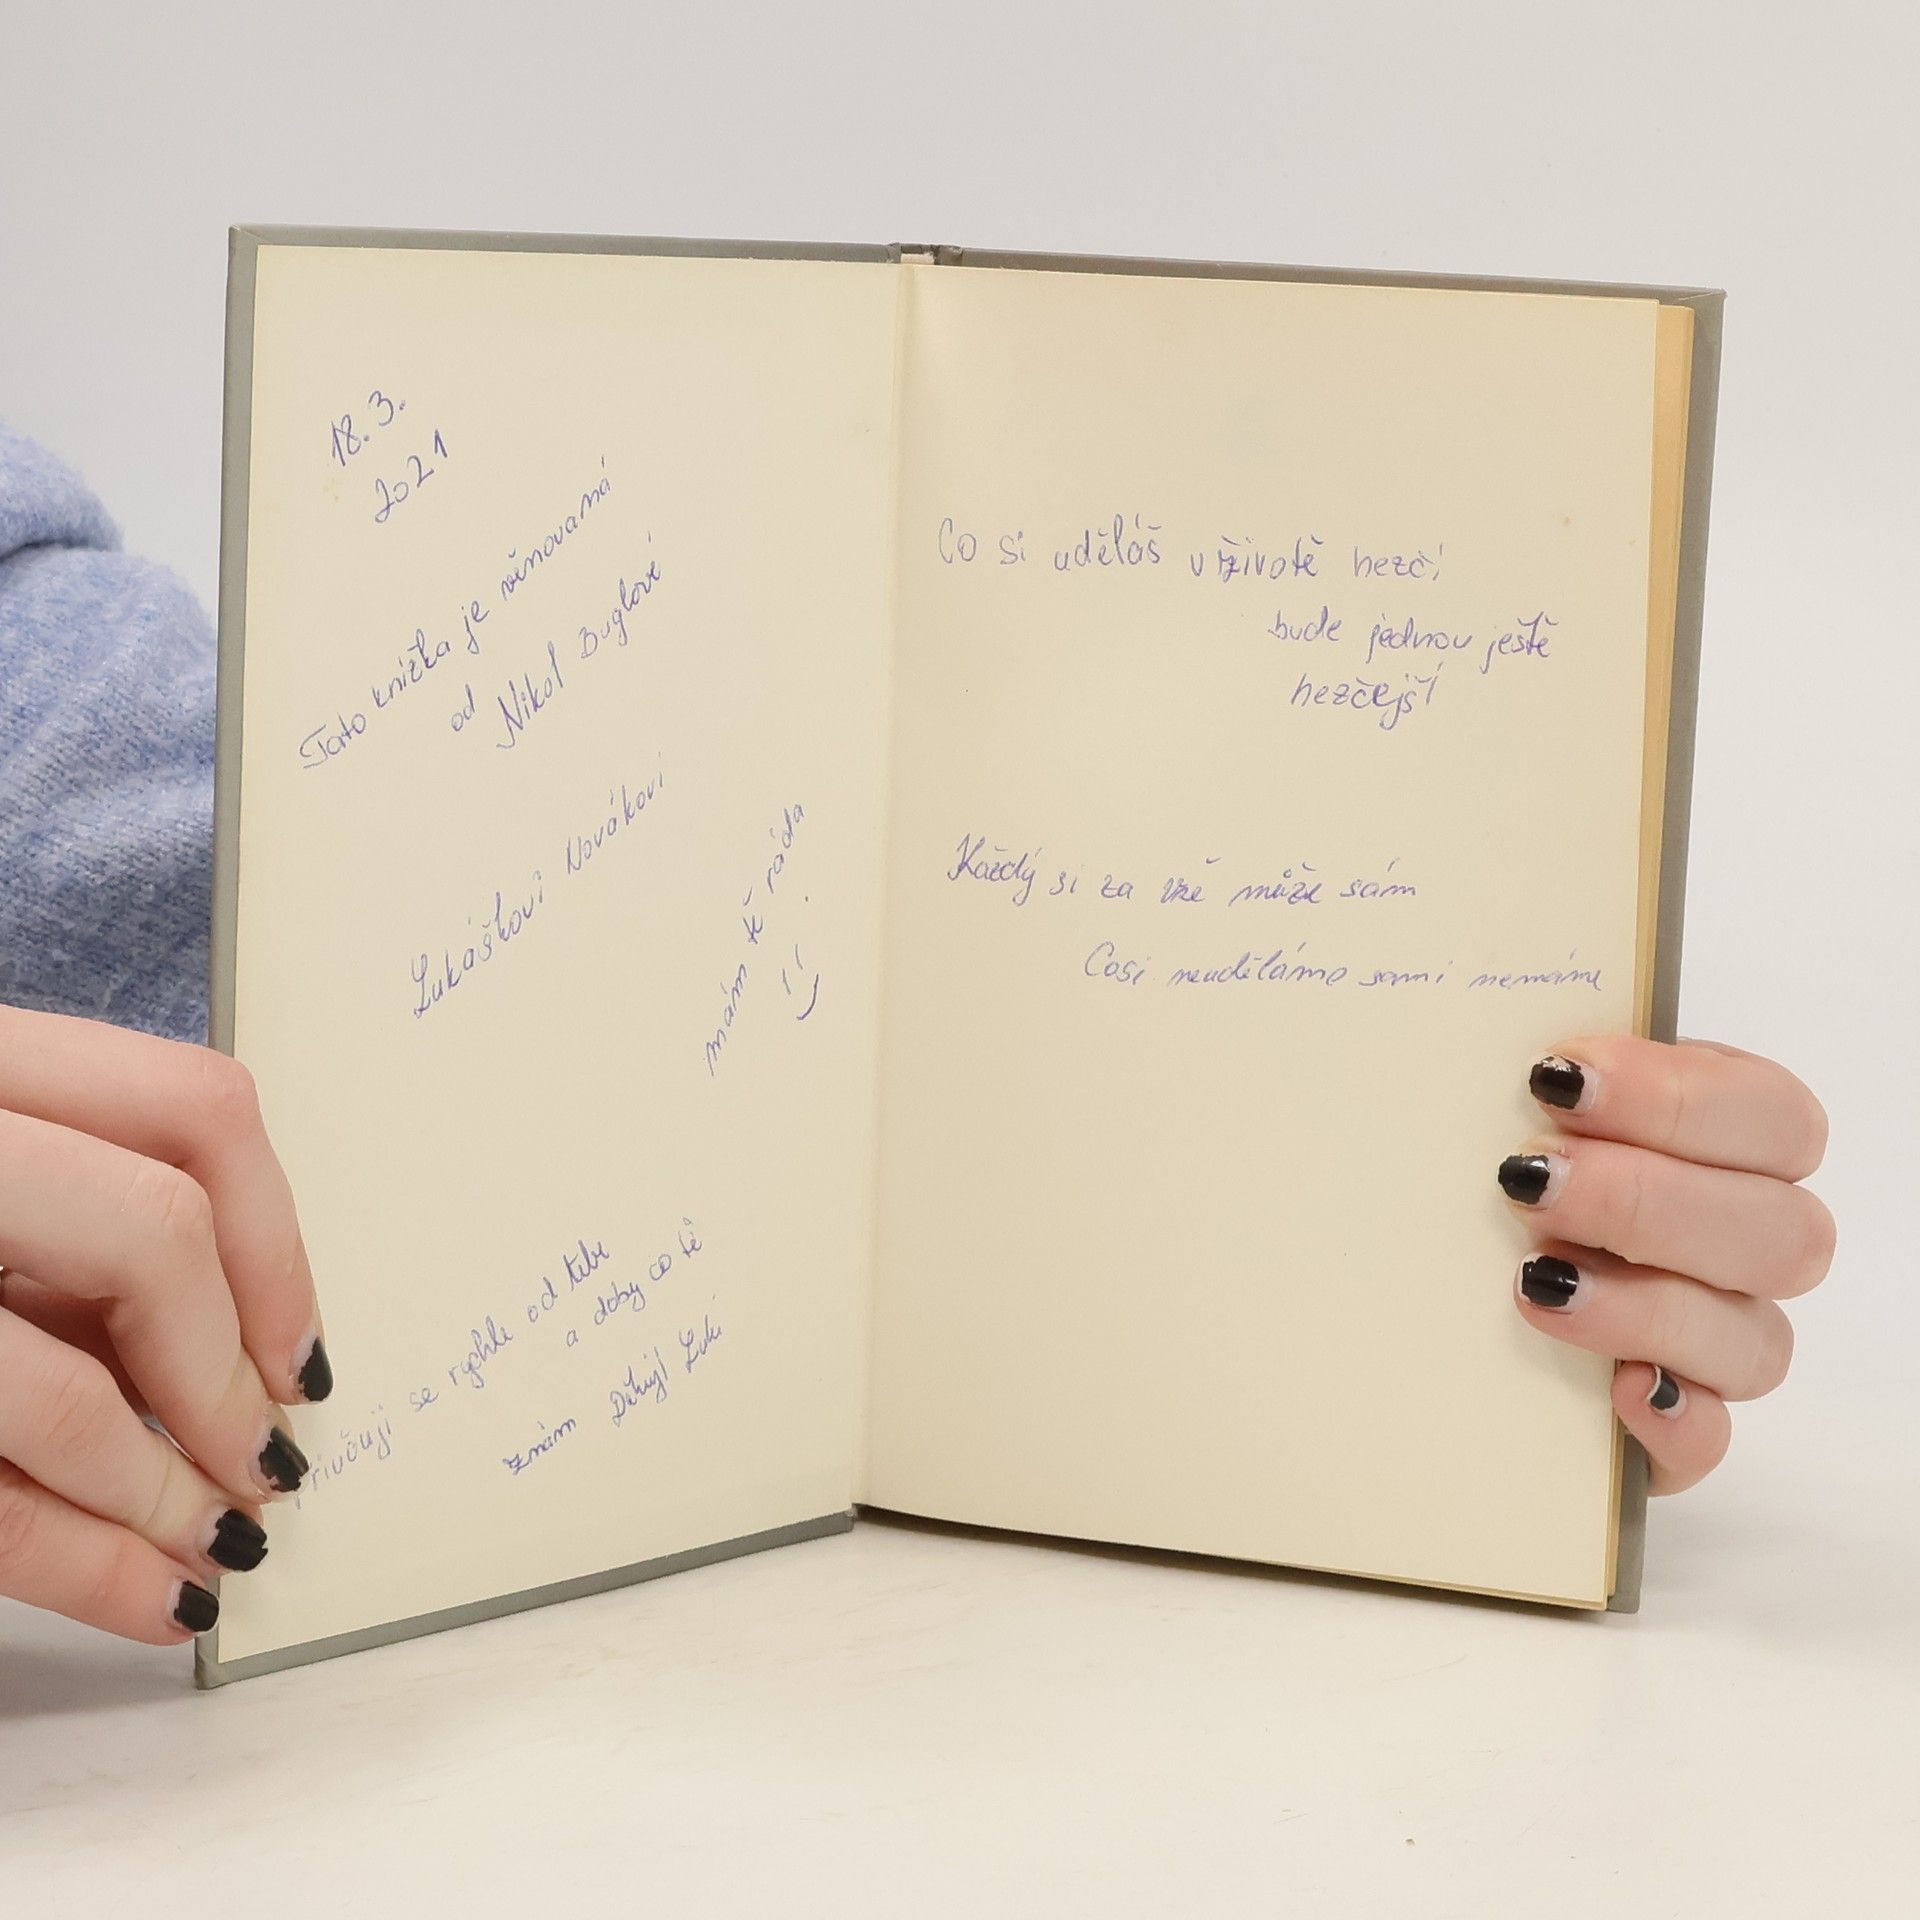 18. 3.
2021
Tato knížka je věnovaná
od
Nikol Buglové
Lukáškovi Novákovi
mám tě ráda
se rychle od tebe
a doby co tě
znám Děkuji Luki
Co si uděláš v životě hezčí
bude jednou ještě
hezčejší
Každý si za vše může sám
Cosi neuděláme sami nemáme